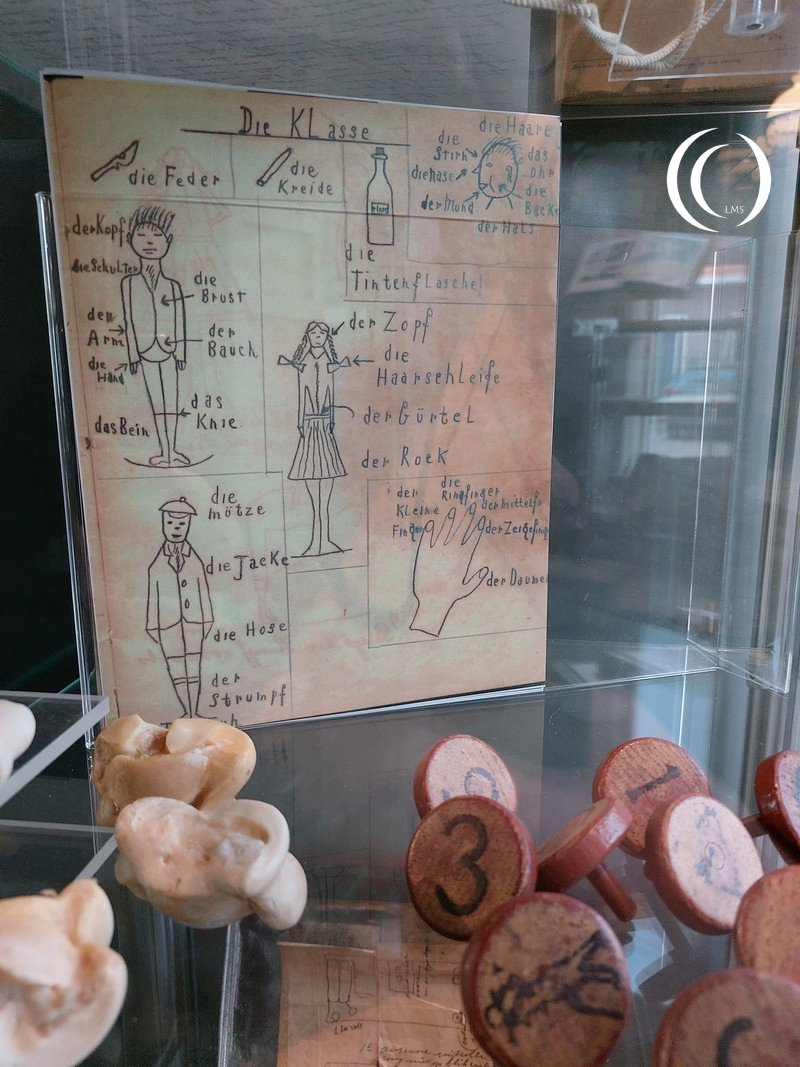 Die Klasse
die Feder
die
Kreide
die
Tintenflasche
die Haare
die
Stirn
das
Ohr
die Nase
die
Backe
der Mund
der Hals
der Kopf
die Schulter
die
Brust
der
Arm
der
Bauch
die
Hand
das
Knie
das Bein
der Zopf
die
Haarschleife
der Gürtel
der Rock
die
mötze
die Jacke
die Hose
der
Strumpf
der
kleine
Finger
die
Ringfinger
der mittelfi
der Zeigefing
der Daumen
LMS
3
1